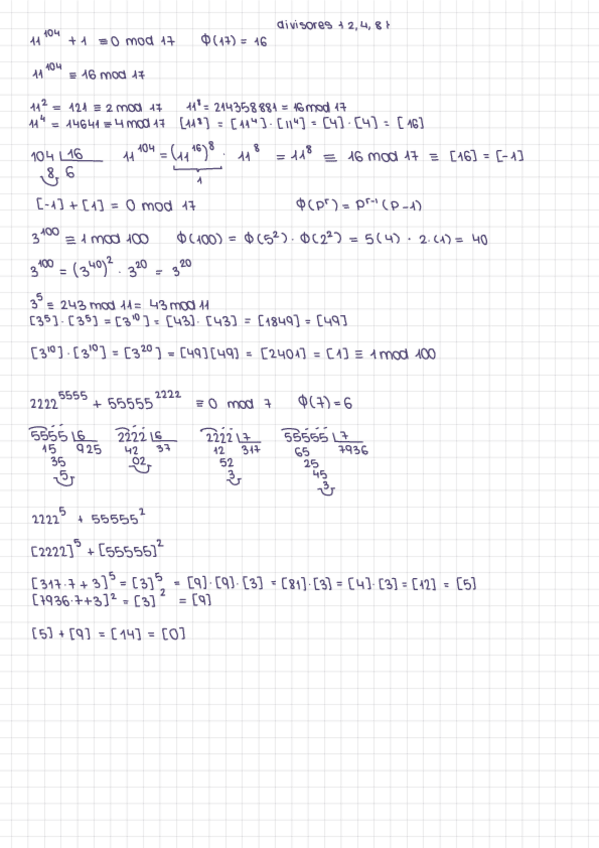 divisores 1 2, 4, 8 ł
11^104 + 1 ≡ 0 mod 17 Φ(17) = 16
11^104 ≡ 16 mod 17
11^2 = 121 ≡ 2 mod 17 11^8 = 214358881 = 16 mod 17
11^4 = 14641 ≡ 4 mod 17 [11^8] = [11^4]·[11^4] = [4]·[4] = [16]
104 |16 11^104 = (11^16)^8 · 11^8 = 11^8 ≡ 16 mod 17 ≡ [16] = [-1]
8 6 1
[-1] + [1] = 0 mod 17 Φ(p^r) = p^r-1 (p-1)
3^100 ≡ 1 mod 100 Φ(100) = Φ(5^2)·Φ(2^2) = 5(4) · 2·(1) = 40
3^100 = (3^40)^2 · 3^20 = 3^20
3^5 ≡ 243 mod 11 = 43 mod 11
[3^5]·[3^5] = [3^10] = [43]·[43] = [1849] = [49]
[3^10]·[3^10] = [3^20] = [49][49] = [2401] = [1] ≡ 1 mod 100
2222^5555 + 55555^2222 ≡ 0 mod 7 Φ(7) = 6
5555 |6 2222 |6 2222 |7 55555 |7
15 925 42 37 12 317 65 7936
35 02 52 25
5 3 45
3
2222^5 + 55555^2
[2222]^5 + [55555]^2
[317·7 + 3]^5 = [3]^5 = [9]·[9]·[3] = [81]·[3] = [4]·[3] = [12] = [5]
[7936·7+3]^2 = [3]^2 = [9]
[5] + [9] = [14] = [0]